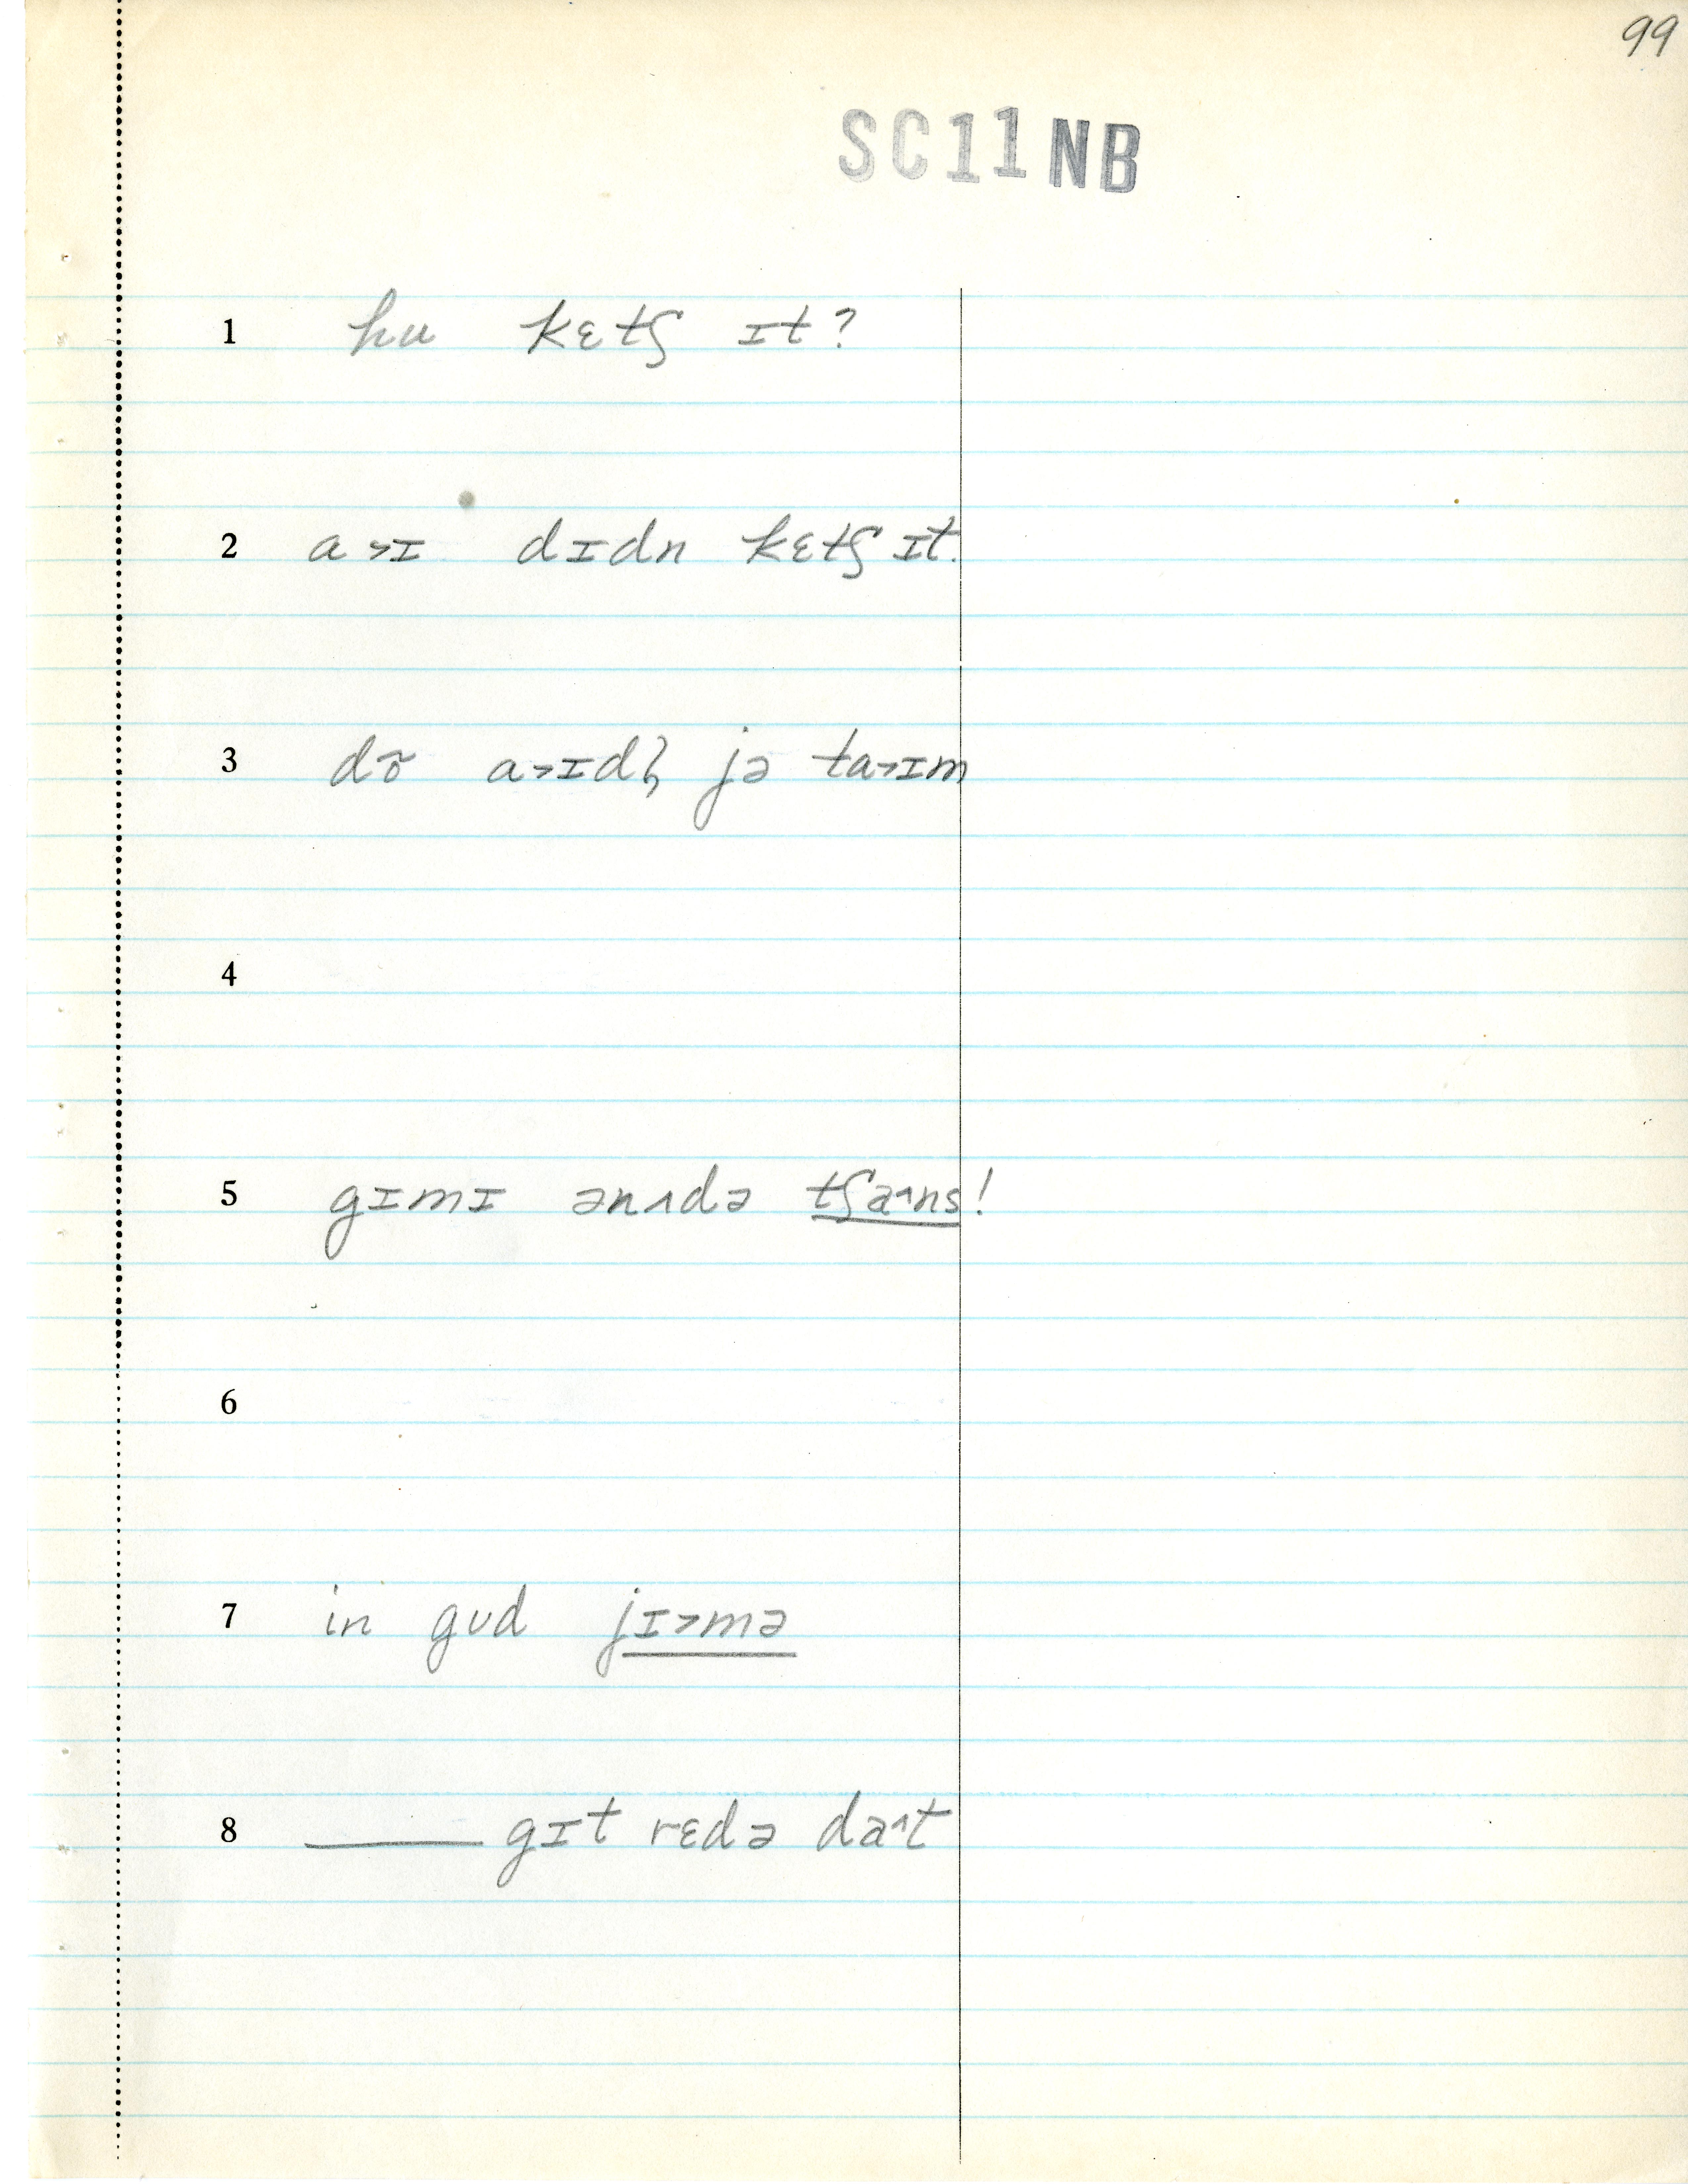 99
SC11NB
1 hu kɛtʃ ɪt?
2 a˃ɪ dɪdn kɛtʃ ɪt.
3 a˃ɪdɮ jə ta˃ɪm
4
5 gɪmɪ ənʌdə tʃa˄ns!
6
7 in gʊd jɪ˃mə
8 ______ gɪt rɛdə da˄t